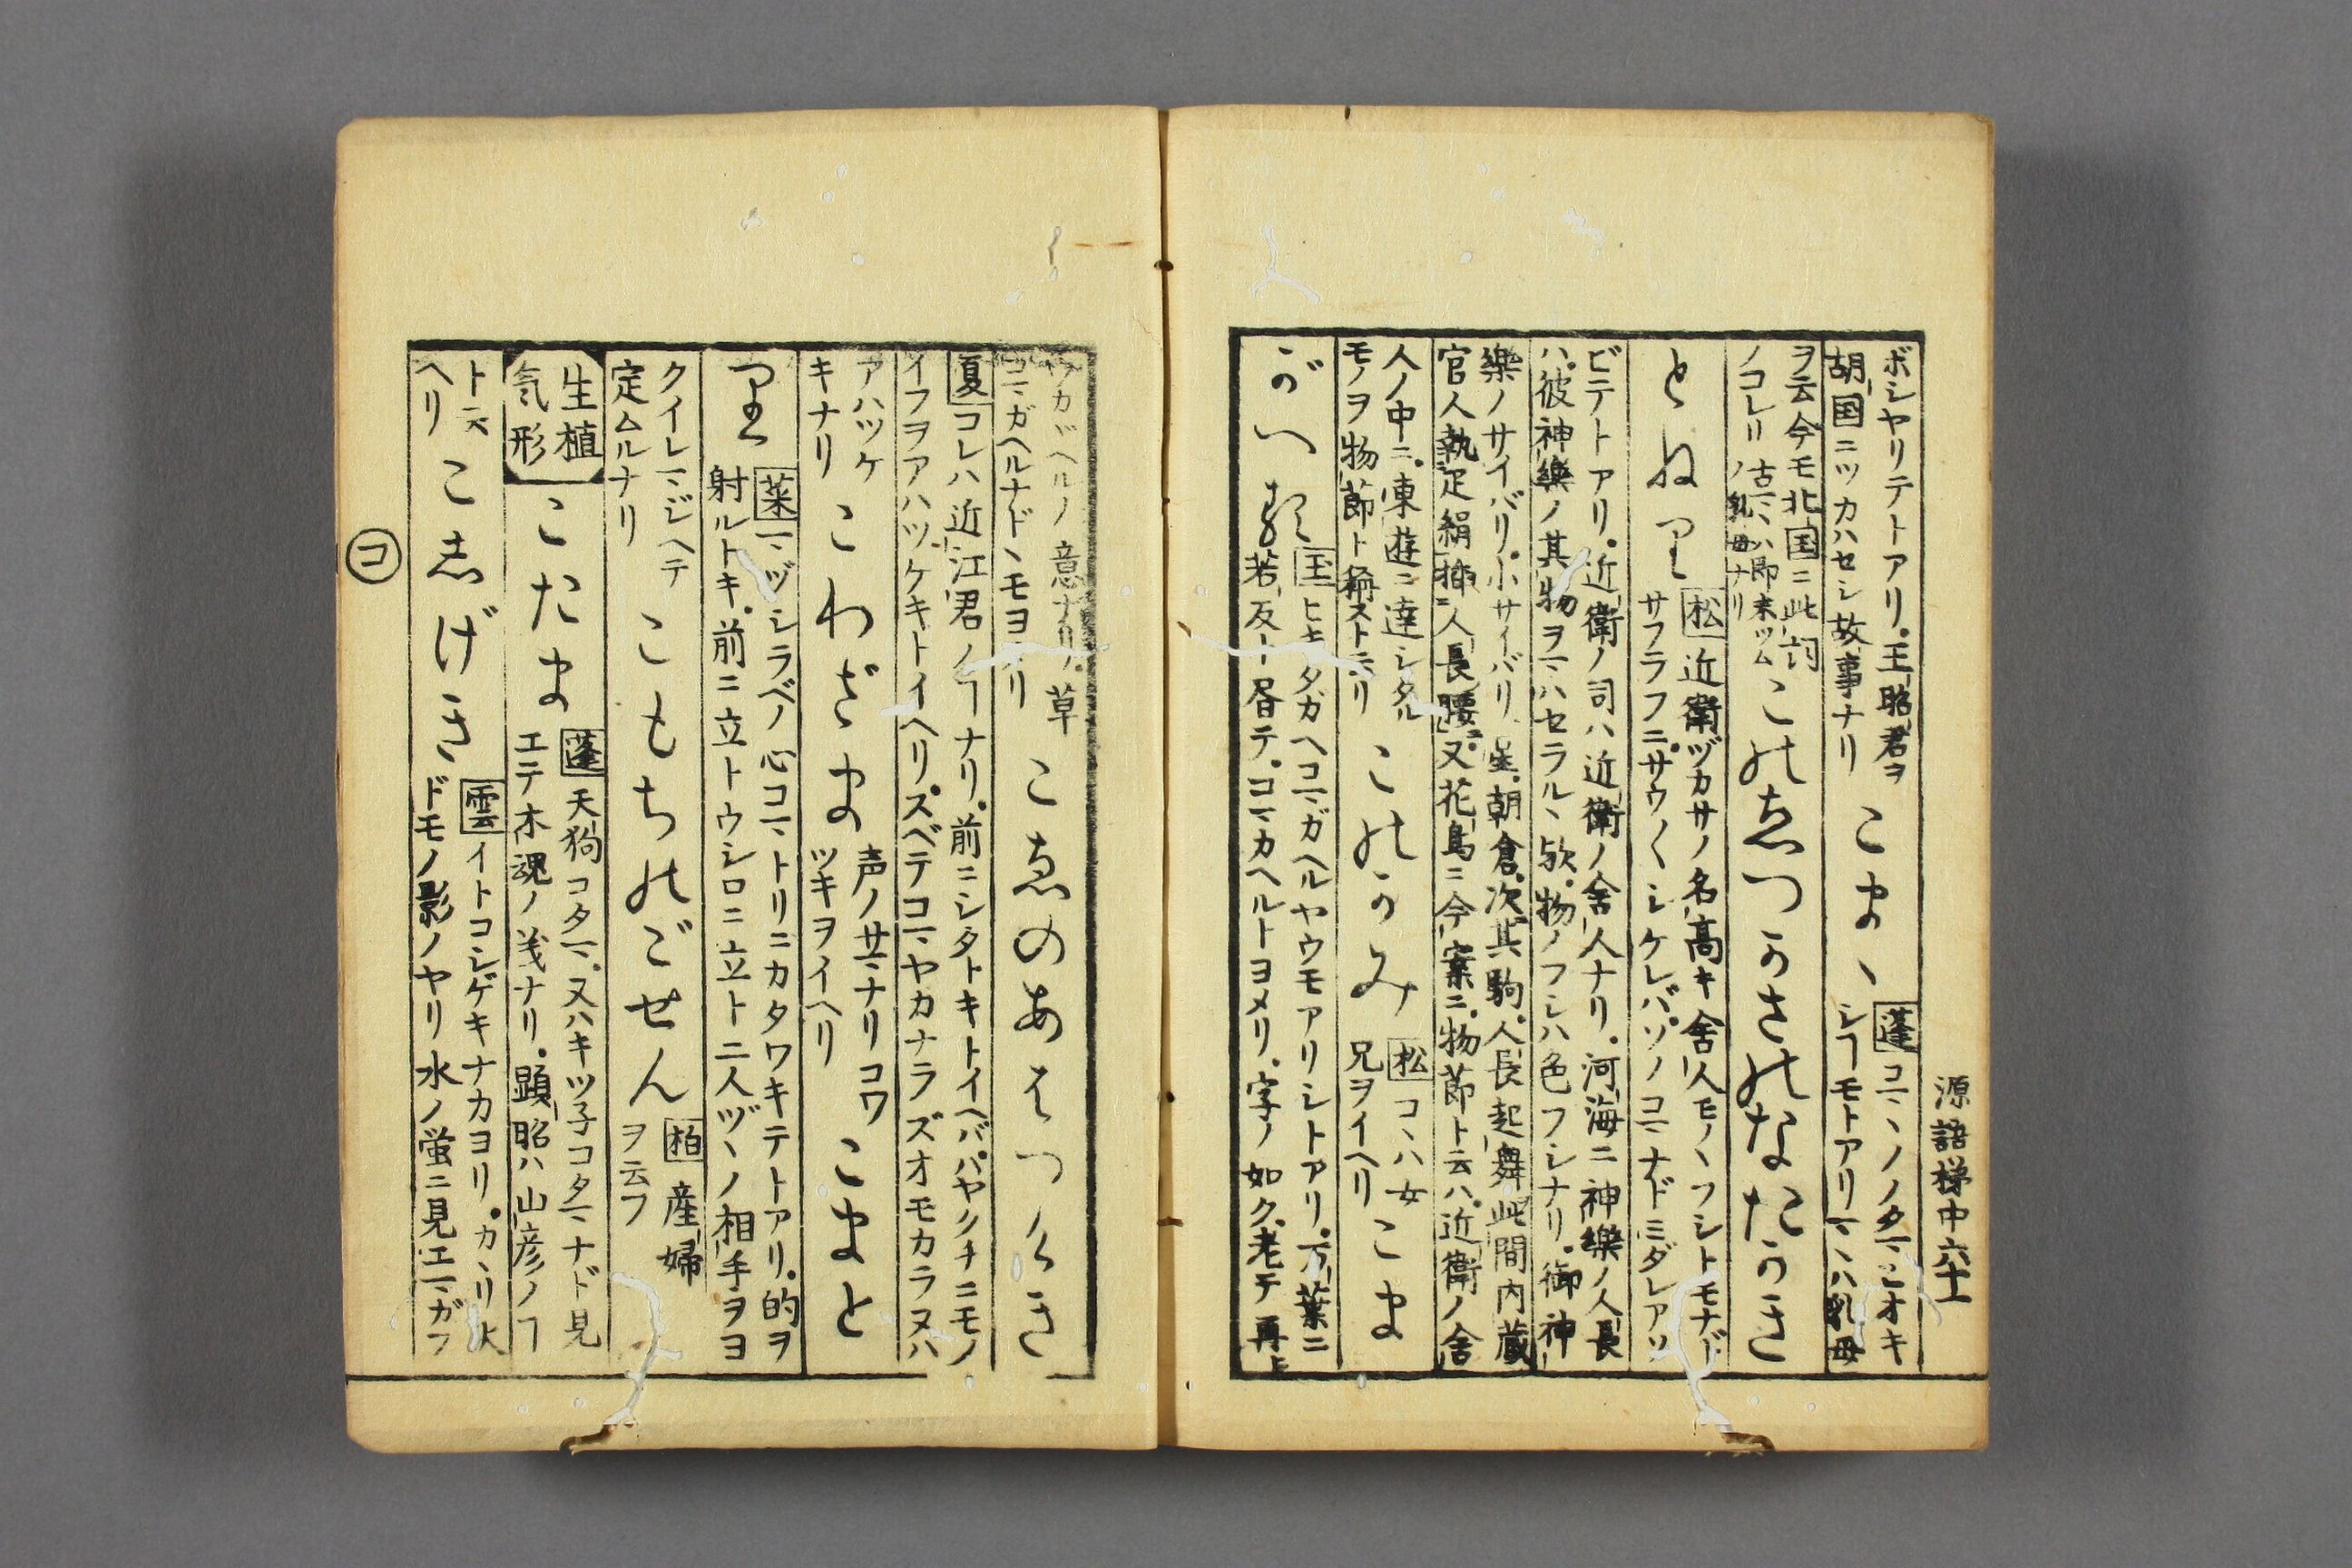 源語梯中六十一
ボシヤリテトアリ。王昭君ヲ
胡国ニツカハセシ故事ナリ
こまゝ
蓬
シ
モトアリ
ハ乳母
ヲ云今モ北国ニ此詞
ノコレリ
ノ乳母ナリ
このゑつかさのなだかき
とねり
松近衛ヅカサノ名高キ舎人モノヽフシトモナド
サフラフニ。サウ〲シケレバ。ソノコマナドミダレアソ
ビテトアリ。近衛ノ司ハ近衛ノ舎人ナリ。河海ニ神樂ノ人長
ハ。彼神樂ノ其物ヲマハセラルヽ欤。物ノフシハ色フシナリ。御神
樂ノサイバリ。小サイバリ。星。朝倉。次其駒。人長起舞此間内蔵
官人執疋絹挿人長腰。又花鳥ニ今案ニ。物節ト云ハ。近衛ノ舎
人ノ中ニ。東遊ニ達シタル
モノヲ物節ト稱スト云リ
このかみ
松コヽハ女
兄ヲイヘリ
こま
がへる
玉ヒキタガヘコマガヘルヤウモアリシトアリ。万葉ニ
若反ト書テ。コマカヘルトヨメリ。字ノ如ク。老テ再ヒ
ワカガヘルノ意ナリ。草
コマガヘルナドヽモヨメリ
こゑのあはつけき
夏コレハ近江君ノ
ナリ。前ニシタトキトイヘバ。ハヤクチニモノ
イフヲアハツケキトイヘリ。スベテコマヤカナラズオモカラヌハ
アハツケ
キナリ
こわざま
声ノサマナリコワ
ツキヲイヘリ
こまと
り
菜マヅシラベノ心コマトリニカタワキテトアリ。的ヲ
射ルトキ。前ニ立トウシロニ立ト二人ヅヽノ相手ヲヨ
クイレマジヘテ
定ムルナリ
こもちのごせん
柏産婦
ヲ云フ
生植
気形
こたま
蓬天狗コタマ。又ハキツ子コタマナド見
エテ木魂ノ義ナリ。顕昭ハ山彦ノ
ト云
ヘリ
こしげき
雲イトコシゲキナカヨリ。カヽリ火
ドモノ影ノヤリ水ノ蛍ニ見エマガフ
コ